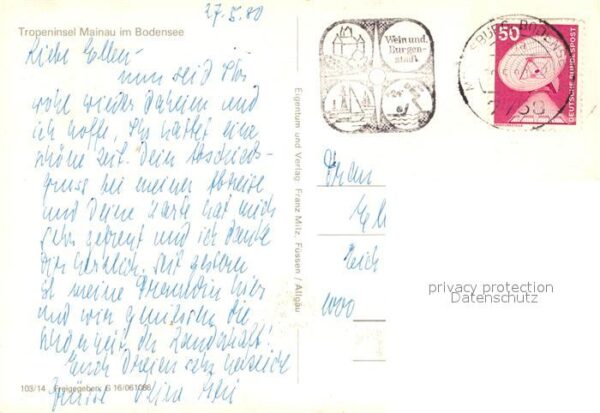 27.5.80
Tropeninsel Mainau im Bodensee
Liebe Ellen -
nun seid Ihr
wohl wieder daheim und
ich hoffe, Ihr hattet eine
schöne Zeit. Dein Abschieds-
gruss bei meiner Abreise
und Deine Karte hat mich
sehr gefreut und ich danke
Dir herzlich. Seit gestern
ist meine Freundin hier
und wir genießen die
Schönheit der Landschaft!
Euch Dreien sehr herzliche
Grüsse Deine
103/14 Freigegeben: G 16/061086
Eigentum und Verlag Franz Milz, Füssen / Allgäu
Wein und
Burgen-
stadt
MEERSBURG, BODENSEE
7758
50
DEUTSCHE BUNDESPOST
Frau
1000
privacy protection
Datenschutz